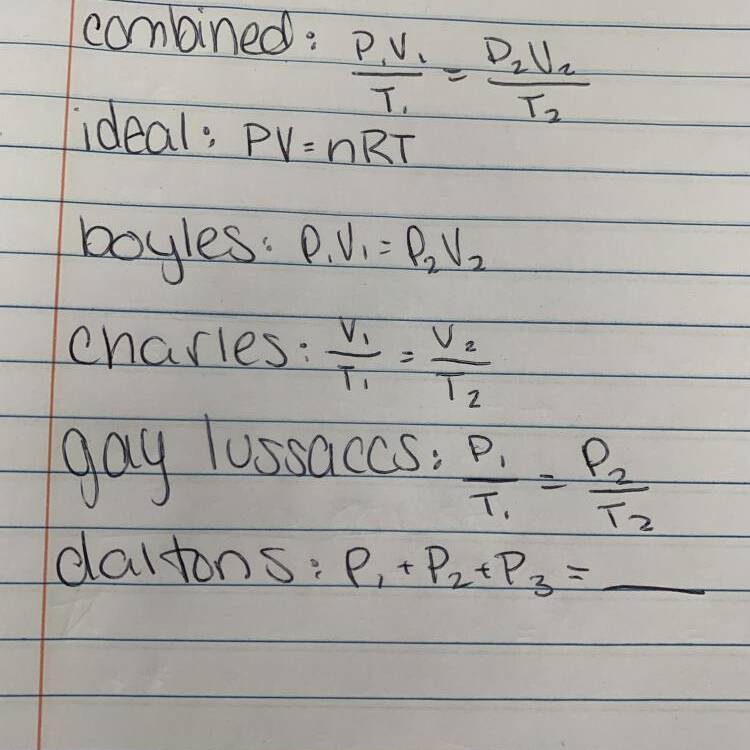 combined: P₁V₁/T₁ = P₂V₂/T₂
ideal: PV = nRT
boyles: P₁V₁ = P₂V₂
charles: V₁/T₁ = V₂/T₂
gay lussaccs: P₁/T₁ = P₂/T₂
daltons: P₁ + P₂ + P₃ = ____